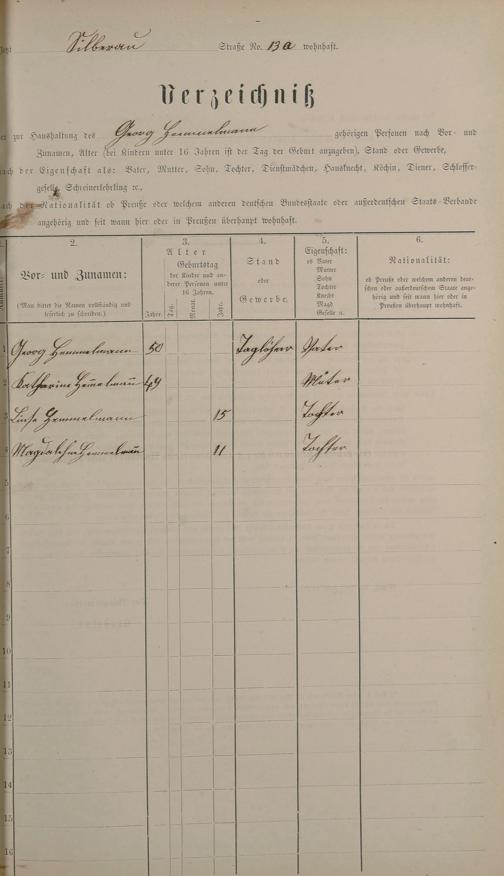 Silberau Straße No. 13a wohnhaft.
Verzeichniß
zur Haushaltung des Georg Hemmelmann gehörigen Personen nach Vor- und
Zunamen, Alter (bei Kindern unter 16 Jahren ist der Tag der Geburt anzugeben), Stand oder Gewerbe,
nach der Eigenschaft als: Vater, Mutter, Sohn, Tochter, Dienstmädchen, Hausknecht, Köchin, Diener, Schlosser-
geselle, Schreinerlehrling ꝛc.,
nach der Nationalität ob Preuße oder welchem anderen deutschen Bundesstaate oder außerdeutschen Staats-Verbande
angehörig und seit wann hier oder in Preußen überhaupt wohnhaft.
1. 2. 3. 4. 5. 6.
Nummer
Vor- und Zunamen:
(Man bittet die Namen vollständig und
leserlich zu schreiben.)
Alter
Geburtstag
der Kinder und an-
derer Personen unter
16 Jahren.
Jahre. Tag. Monat. Jahr.
Stand
oder
Gewerbe.
Eigenschaft:
ob Vater
Mutter
Sohn
Tochter
Knecht
Magd
Geselle ꝛc.
Nationalität:
ob Preuße oder welchem anderen deut-
schen oder außerdeutschen Staate ange-
hörig und seit wann hier oder in
Preußen überhaupt wohnhaft.
1 Georg Hemmelmann 50 Taglöhner Vater
2 Katharine Hem̄elman̄ 49 Mutter
3 Luise Hemmelmann 15 Tochter
4 Magdalehne Hemmelman̄ 11 Tochter
5
6
7
8
9
10
11
12
13
14
15
16